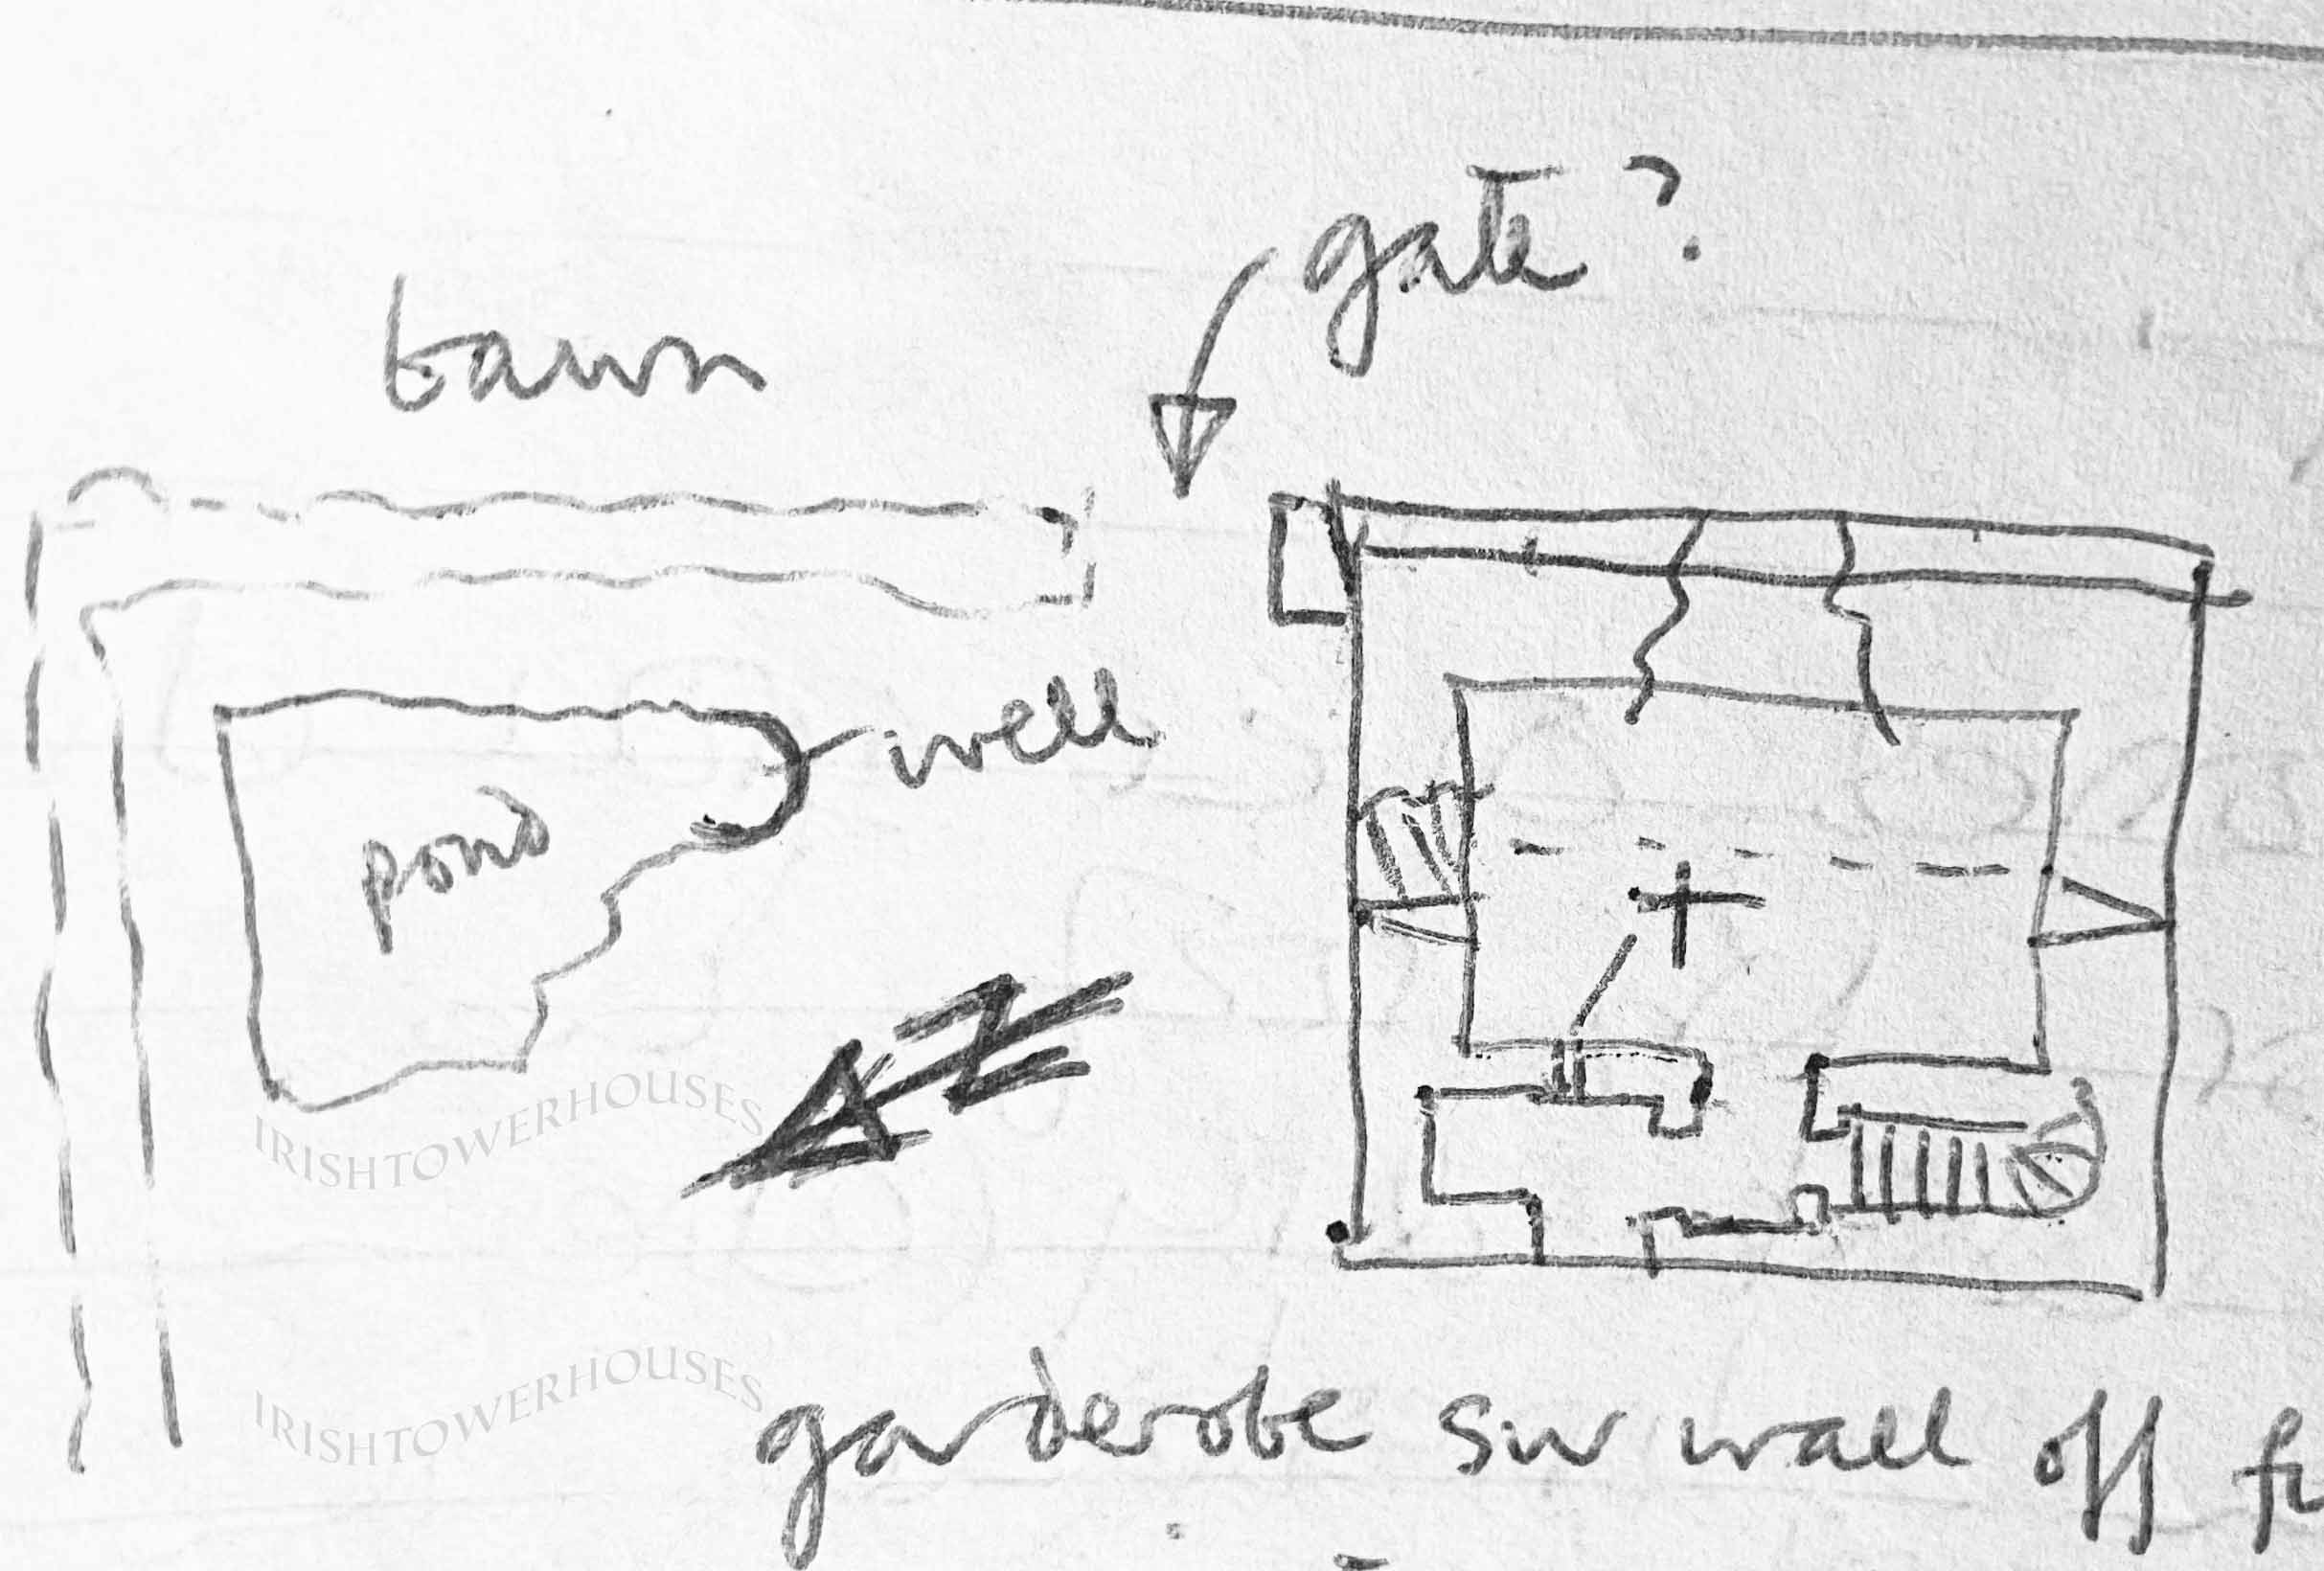 gate?
bawn
well
pond
N
IRISHTOWERHOUSES
IRISHTOWERHOUSES
garderobe SW wall off